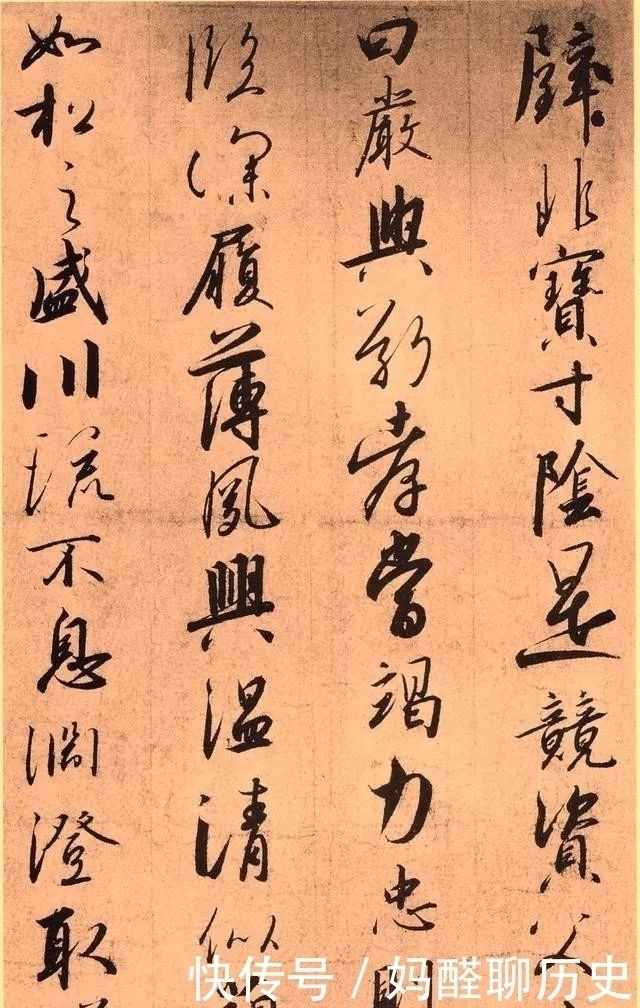 璧非寶寸陰是競資父
曰嚴與敬孝當竭力忠則
臨深履薄夙興溫清似
如松之盛川流不息淵澄取
快传号 / 妈醛聊历史